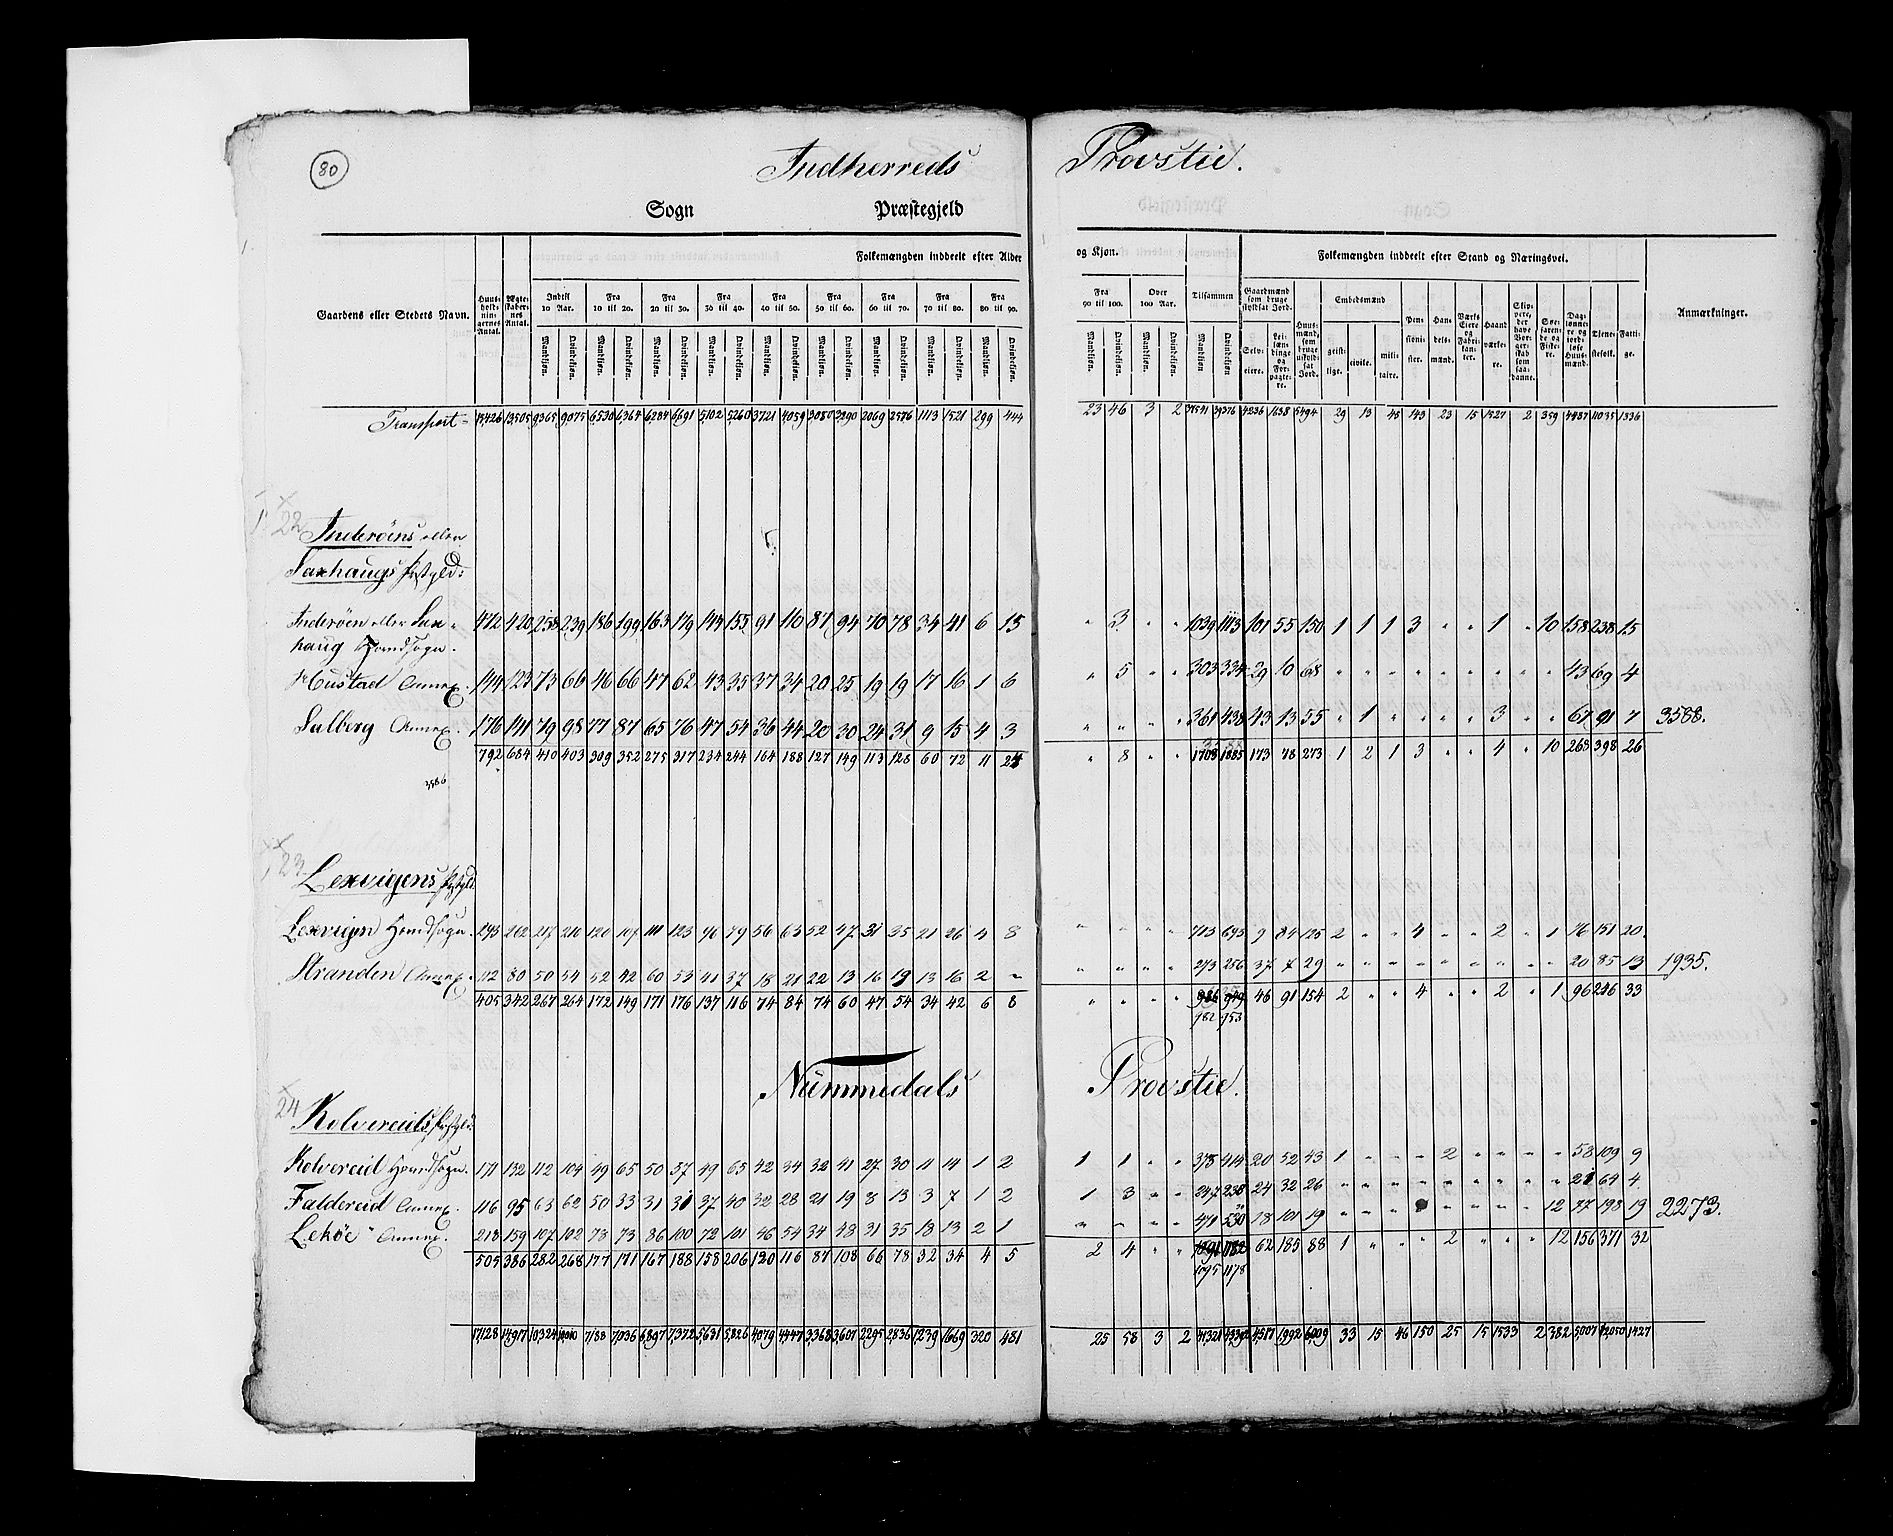 80
Indherreds Provstie.
Sogn Præstegjeld
Gaardens eller Stedets Navn. Huus-holdnin-gernes Antal. Ægte-Faber-nes Antal. Folkemængden inddeelt efter Alder og Kjøn. Tilsammen Folkemængden inddeelt efter Stand og Næringsvei. Anmærkninger.
Indtil 10 Aar. Fra 10 til 20. Fra 20 til 30. Fra 30 til 40. Fra 40 til 50. Fra 50 til 60. Fra 60 til 70. Fra 70 til 80. Fra 80 til 90. Fra 90 til 100. Over 100 Aar.
Mandkiøn. Qvindekiøn. Mandkiøn. Qvindekiøn. Mandkiøn. Qvindekiøn. Mandkiøn. Qvindekiøn. Mandkiøn. Qvindekiøn. Mandkiøn. Qvindekiøn. Mandkiøn. Qvindekiøn. Mandkiøn. Qvindekiøn. Mandkiøn. Qvindekiøn. Mandkiøn. Qvindekiøn. Mandkiøn. Qvindekiøn. Mandkiøn. Qvindekiøn
Gaardmænd som bruge skyldsat Jord. Selv-eiere. Lei-lændinge og For-pagte-re. Huus-mænd, som bruge uskyld-sat Jord. Embedsmænd geist-lige. civile. mili-taire. Pen-sioni-ster. Han-dels-mænd. Værks Eiere og Fabri-kan-ter. Haand værke-re. Skip-pere, der have Bor-ger-skab som saa-danne. Søe-faren-de og Fiske-re. Dag-lønne-re og jord-løse Huus-mænd. Tjene-stefolk. Fatti-ge.
Transport 15,426 13,505 9,365 9,075 6,530 6,364 6,284 6,691 5,102 5,260 3,721 4,059 3,080 3,290 2,069 2,576 1113 1,521 299 444 23 46 3 2 37541 39376 4236 1638 5494 29 13 45 143 23 15 1527 2 359 4487 11035 1336
22 Inderöens eller
Saxhaugs Præstgjld:
Inderöen eller Sax-
haug Hovedsogn. 472 420 258 239 186 199 163 179 144 155 91 110 87 94 70 78 34 41 6 15 " 3 " " 1039 1113 101 55 150 1 1 1 3 " " 1 " 10 158 238 15
Hustad Annex. 144 123 73 66 46 66 47 62 43 35 37 34 20 25 19 19 17 16 1 6 " 5 " " 303 334 29 10 68 " " " " " " " " " 43 69 4
Salberg Annex. 176 141 79 98 77 87 65 76 47 54 36 44 20 30 24 31 9 15 4 3 " " " " 361 438 43 13 55 " 1 " " " " 3 " " 67 91 7 3588.
792 684 410 403 309 352 275 317 234 244 164 188 127 149 113 128 60 72 11 24 " 8 " " 1703 1885 173 78 273 1 2 1 3 " " 4 " 10 268 398 26
3586
23.
Lexvigens Præstgjld:
Lexvigen Hovedsogn. 293 262 217 210 120 107 111 123 96 79 56 63 52 47 31 35 21 26 4 8 " " " " 713 693 9 84 125 2 " " 4 " " 2 " 1 76 151 20.
Stranden Annex. 112 80 50 54 52 42 60 53 41 37 18 21 22 13 16 19 13 16 2 " " " " " 273 256 37 7 29 " " " " " " " " " 20 85 13 1935.
405 342 267 264 172 149 171 176 137 116 74 84 74 60 47 54 34 42 6 8 " " " " 986 949 46 91 154 2 " " 4 " " 2 " 1 96 246 33
982 953
Nummedals Provstie.
24 Kolvereids Præstgjld:
Kolvereid Hovedsogn. 171 132 112 104 49 65 50 37 49 65 42 34 32 41 27 30 11 14 1 2 1 1 " " 378 414 20 52 43 1 " " " 2 " " " " 58 109 9
Faldereid Annex. 116 95 63 62 50 33 31 31 37 40 32 28 21 19 8 13 3 7 1 2 1 3 " " 247 238 24 32 26 " " " " " " " " " 21 64 4
Leköe Annex. 218 159 107 102 78 73 86 100 72 101 46 54 34 48 31 35 18 13 2 1 " " " " 471 530 18 101 19 " " " " " " " 12 77 198 19 2273.
505 386 282 268 177 171 167 188 158 206 120 116 87 108 66 78 32 34 4 5 2 4 " " 1091 1182 62 185 88 1 " " " 2 " " " 12 156 371 32
1095 1178
17128 14917 10324 10010 7188 7,036 6,897 7,372 5,631 5,826 4079 4,447 3,368 3,607 2295 2,836 1,239 1669 320 481 25 58 3 2 41,321 43,392 4,517 1,992 6,009 33 15 46 150 25 15 1533 2 382 5,007 12,050 1427